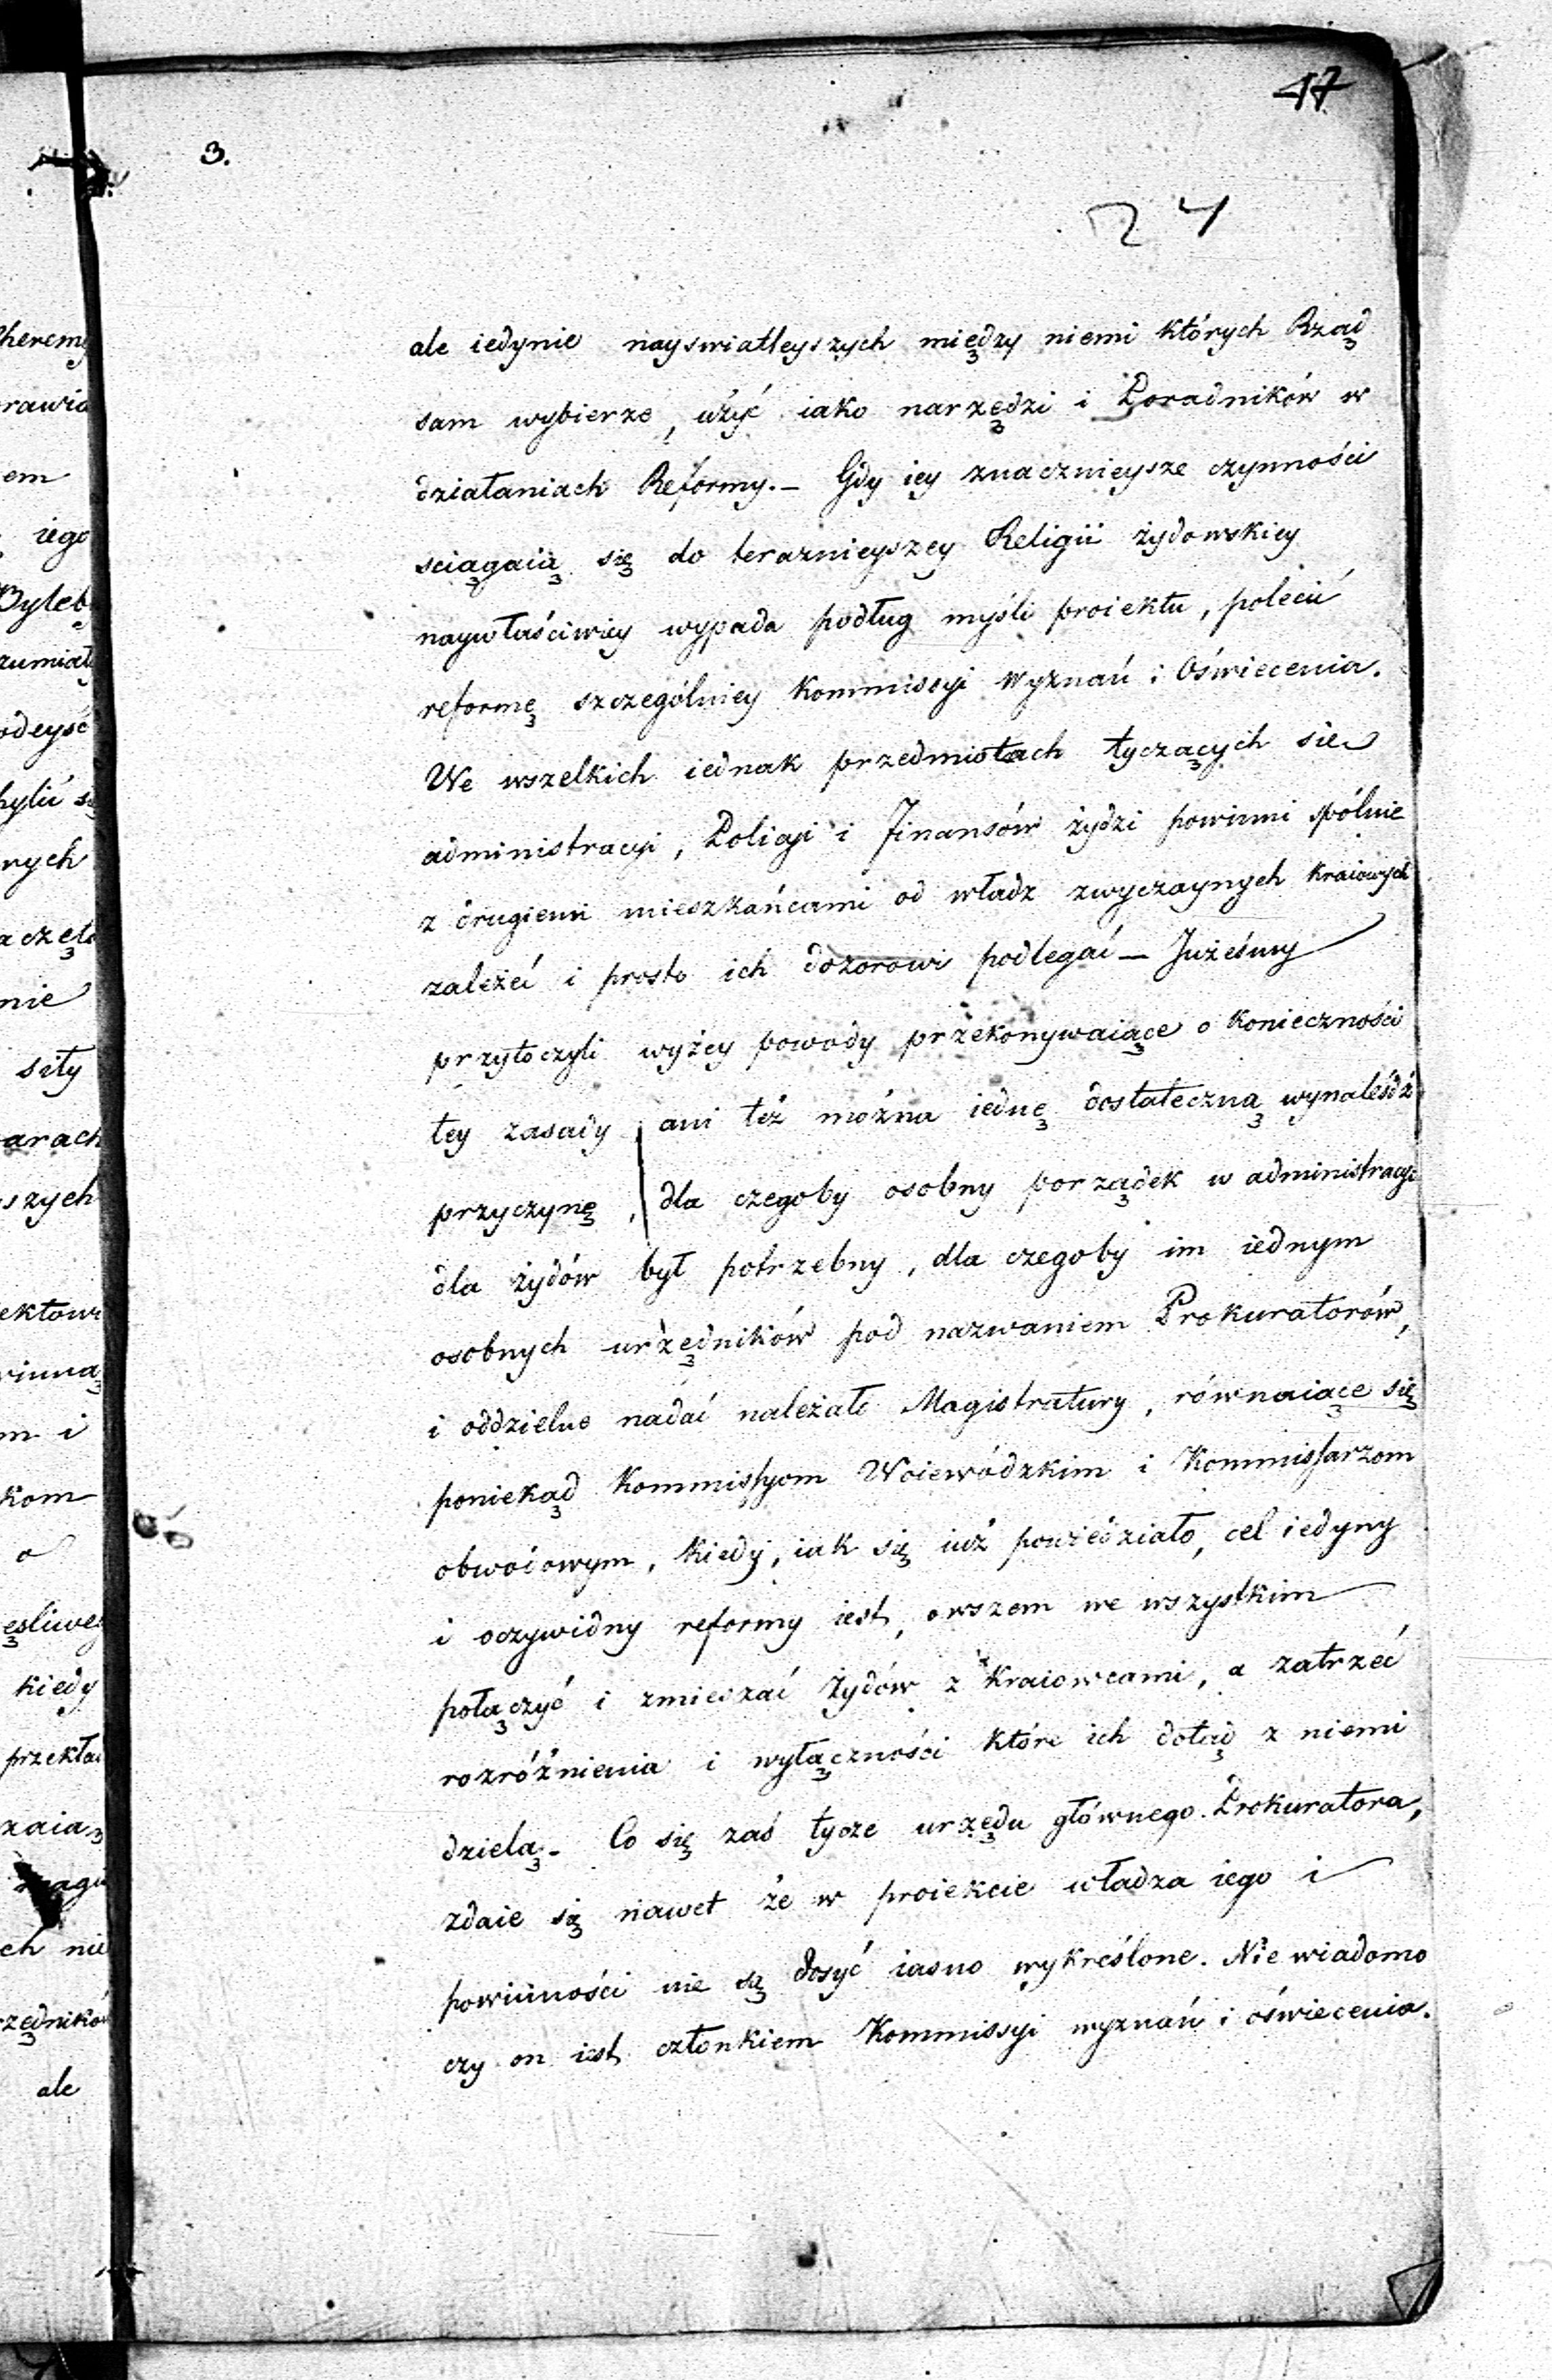 47
3.
24
ale iedynie nayswiatleyszych między niemi których Rząd
sam wybierze, użyć iako narzędzi i Poradników w
działaniach Reformy. — Gdy iey znacznieysze czynności
sciągaią się do teraznieyszey Religii żydowskiey
naywłaściwiey wypada podług myśli proiektu, polecić
reformę szczególniey Kommissyi Wyznań i Oświecenia.
We wszelkich iednak przedmiotach tyczących sie
administracyi, Policyi i Finansów żydzi powinni spólnie
z drugiemi mieszkańcami od władz zwyczaynych kraiowych
zależeć i prosto ich dozorowi podlegać — Jużeśmy
przytoczyli wyżey powody przekonywaiące o konieczności
tey zasady, ani też można iednę dostateczną wynaleśdź
przyczynę, dla czegoby osobny porządek w administracyi
dla żydów był potrzebny, dla czegoby im iednym
osobnych urzędników pod nazwaniem Prokuratorów,
i oddzielne nadać należało Magistratury, równaiące się
poniekąd Kommissyom Woiewódzkim i Kommissarzom
obwodowym, kiedy, iak się iuż powiedziało, cel iedyny
i oczywidny reformy iest, owszem we wszystkim
połączyć i zmieszać Żydów z Kraiowcami, a zatrzeć
rozróżnienia i wyłączności które ich dotąd z niemi
dzielą. — Co się zaś tycze urzędu głównego Prokuratora,
zdaie się nawet że w proiekcie władza iego i
powinności nie są dosyć iasno wykreślone. Nie wiadomo
czy on iest członkiem Kommissyi wyznań i oświecenia.